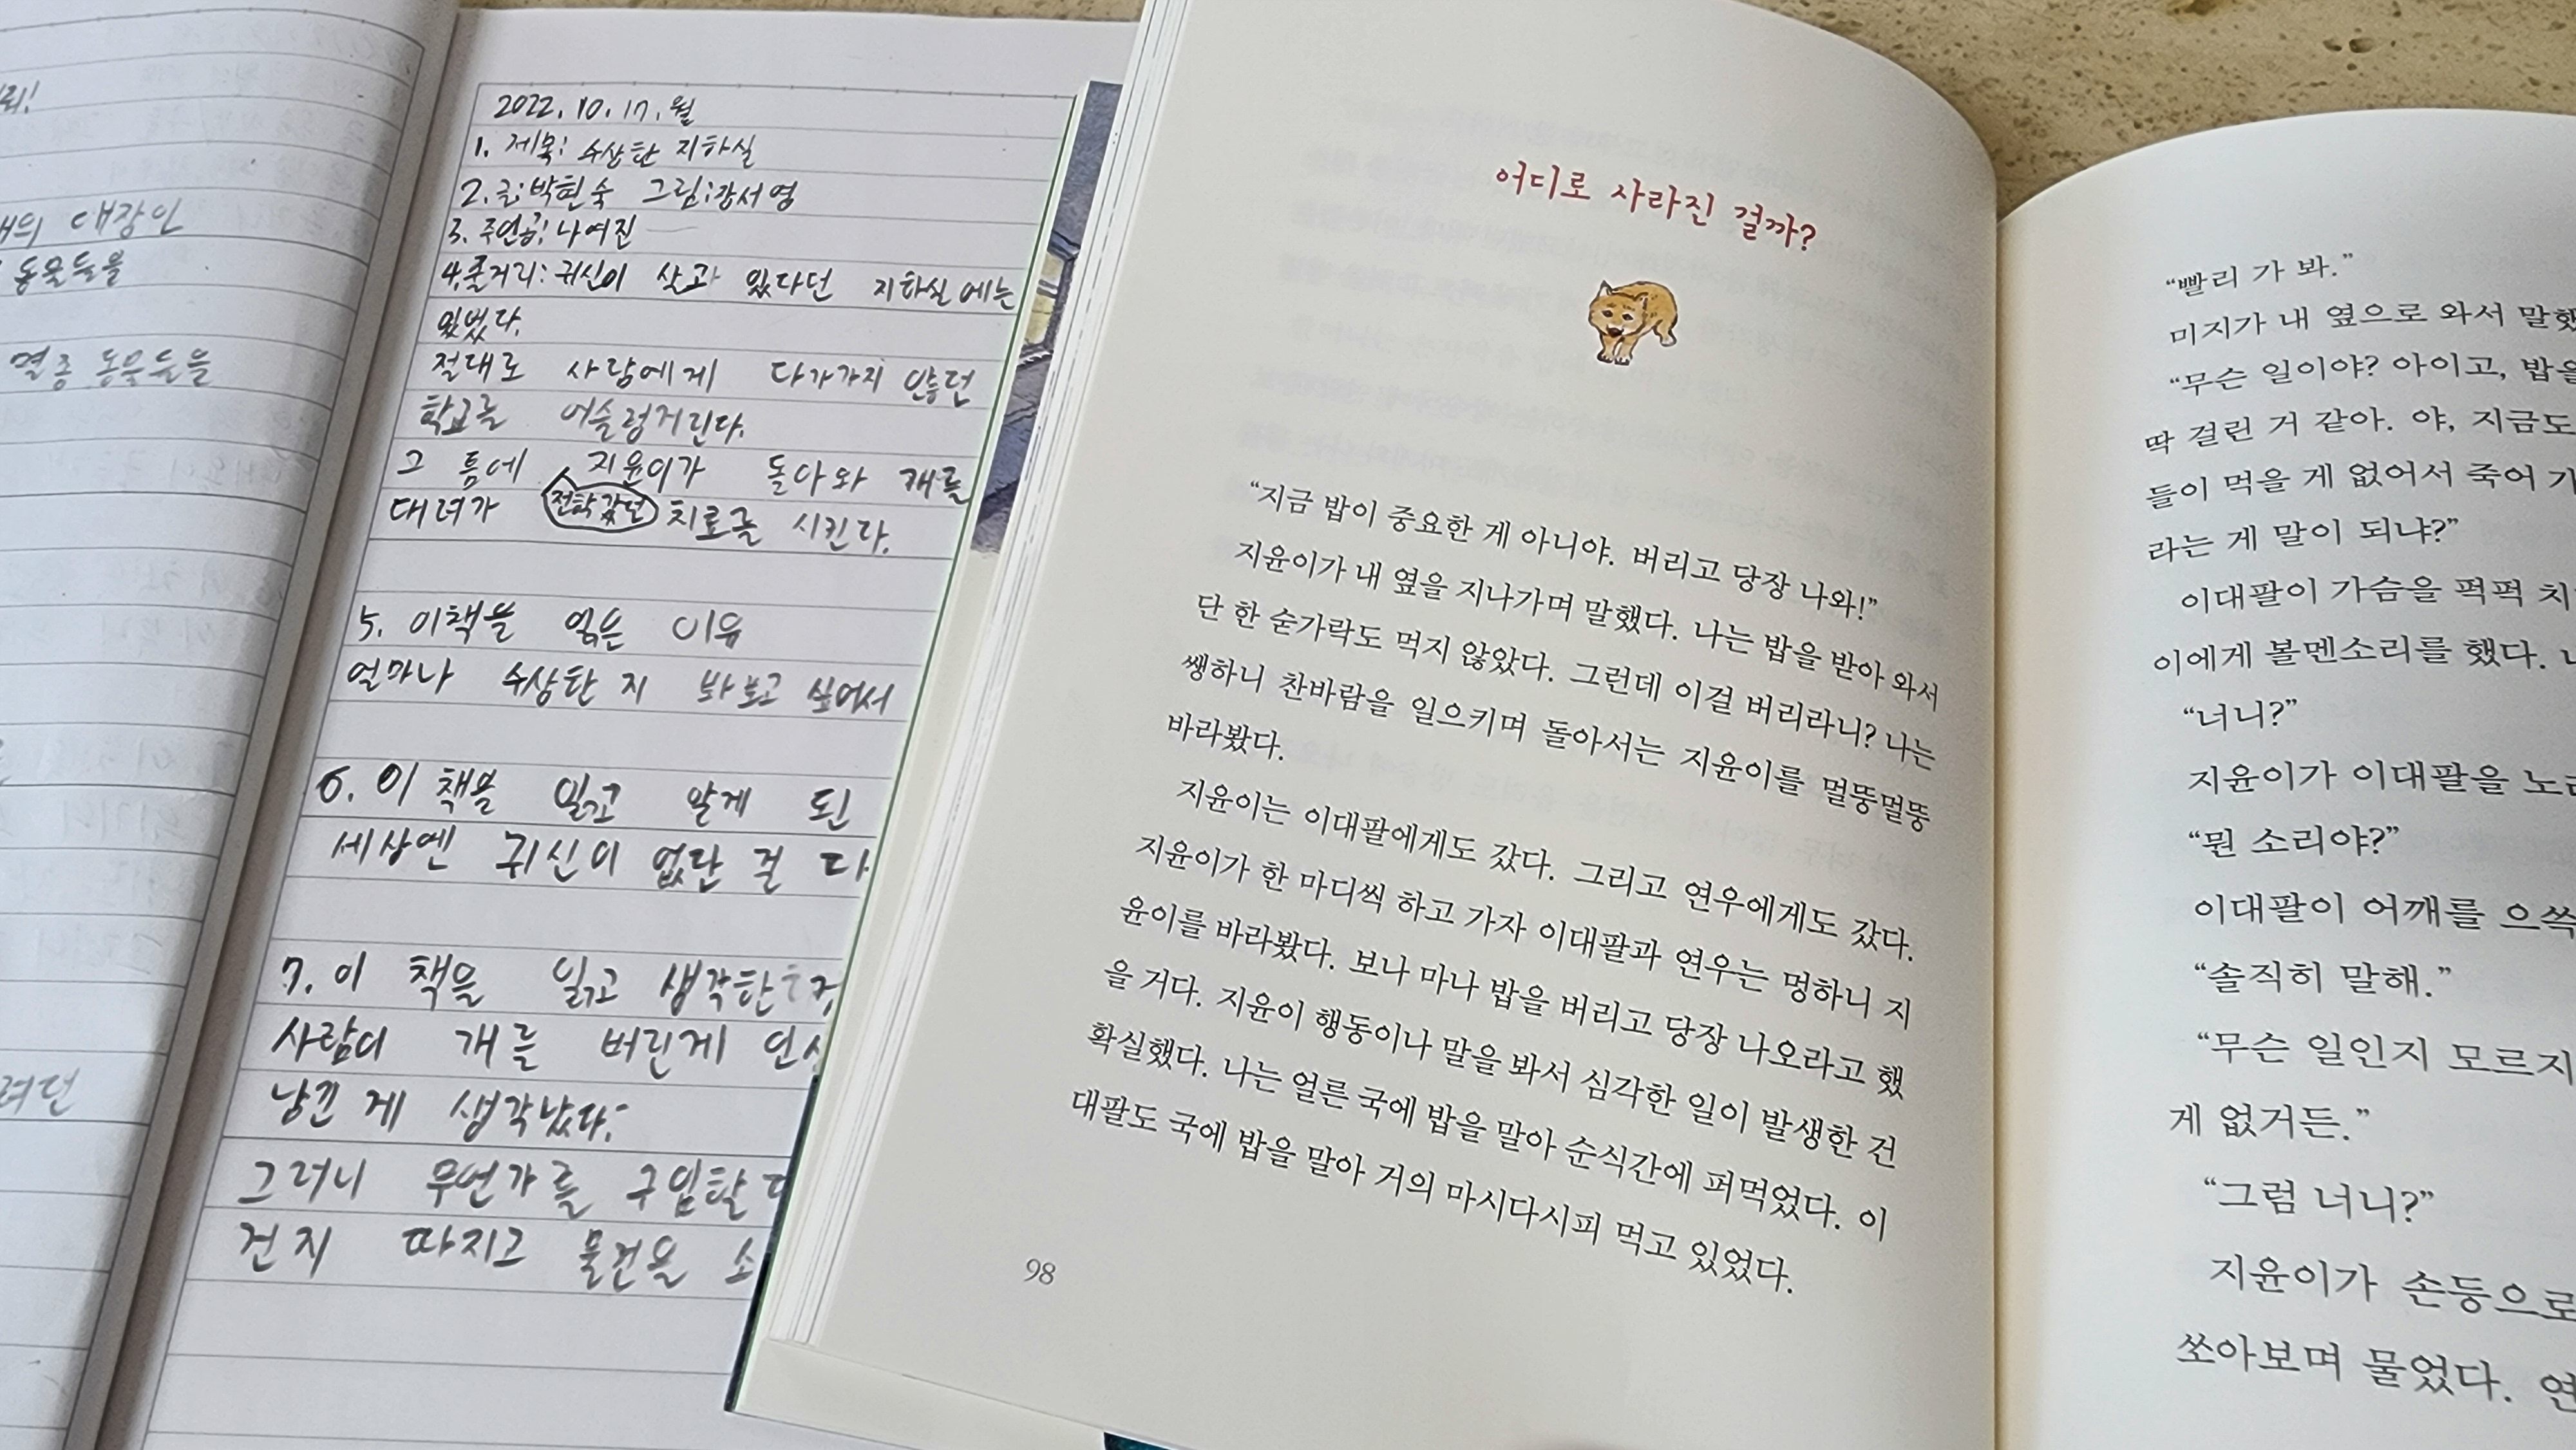 대장인
동물들을
멸종 동물들을
려던
2022. 10. 17. 월
1. 제목: 수상한 지하실
2. 글: 박현숙 그림: 장서영
3. 주인공: 나여진
4. 줄거리: 귀신이 살고 있다던 지하실에는
있었다.
절대로 사람에게 다가가지 않던
학교를 어슬렁거린다.
그 틈에 지윤이가 돌아와 개를
전학갔던
대려가 치료를 시킨다.
5. 이책을 읽은 이유
얼마나 수상한 지 봐보고 싶어서
6. 이 책을 읽고 알게 된
세상엔 귀신이 없단 걸 다
7. 이 책을 읽고 생각한
사람이 개를 버린게 인상
남긴 게 생각났다.
그러니 무언가를 구입할
건지 따지고 물건을 소
어디로 사라진 걸까?
“지금 밥이 중요한 게 아니야. 버리고 당장 나와!”
지윤이가 내 옆을 지나가며 말했다. 나는 밥을 받아 와서
단 한 숟가락도 먹지 않았다. 그런데 이걸 버리라니? 나는
쌩하니 찬바람을 일으키며 돌아서는 지윤이를 멀뚱멀뚱
바라봤다.
지윤이는 이대팔에게도 갔다. 그리고 연우에게도 갔다.
지윤이가 한 마디씩 하고 가자 이대팔과 연우는 멍하니 지
윤이를 바라봤다. 보나 마나 밥을 버리고 당장 나오라고 했
을 거다. 지윤이 행동이나 말을 봐서 심각한 일이 발생한 건
확실했다. 나는 얼른 국에 밥을 말아 순식간에 퍼먹었다. 이
대팔도 국에 밥을 말아 거의 마시다시피 먹고 있었다.
98
“빨리 가 봐.”
미지가 내 옆으로 와서 말했
“무슨 일이야? 아이고, 밥을
딱 걸린 거 같아. 야, 지금도
들이 먹을 게 없어서 죽어 가
라는 게 말이 되냐?”
이대팔이 가슴을 퍽퍽 치
이에게 볼멘소리를 했다.
“너니?”
지윤이가 이대팔을 노려
“뭔 소리야?”
이대팔이 어깨를 으쓱
“솔직히 말해.”
“무슨 일인지 모르지
게 없거든.”
“그럼 너니?”
지윤이가 손등으로
쏘아보며 물었다. 연